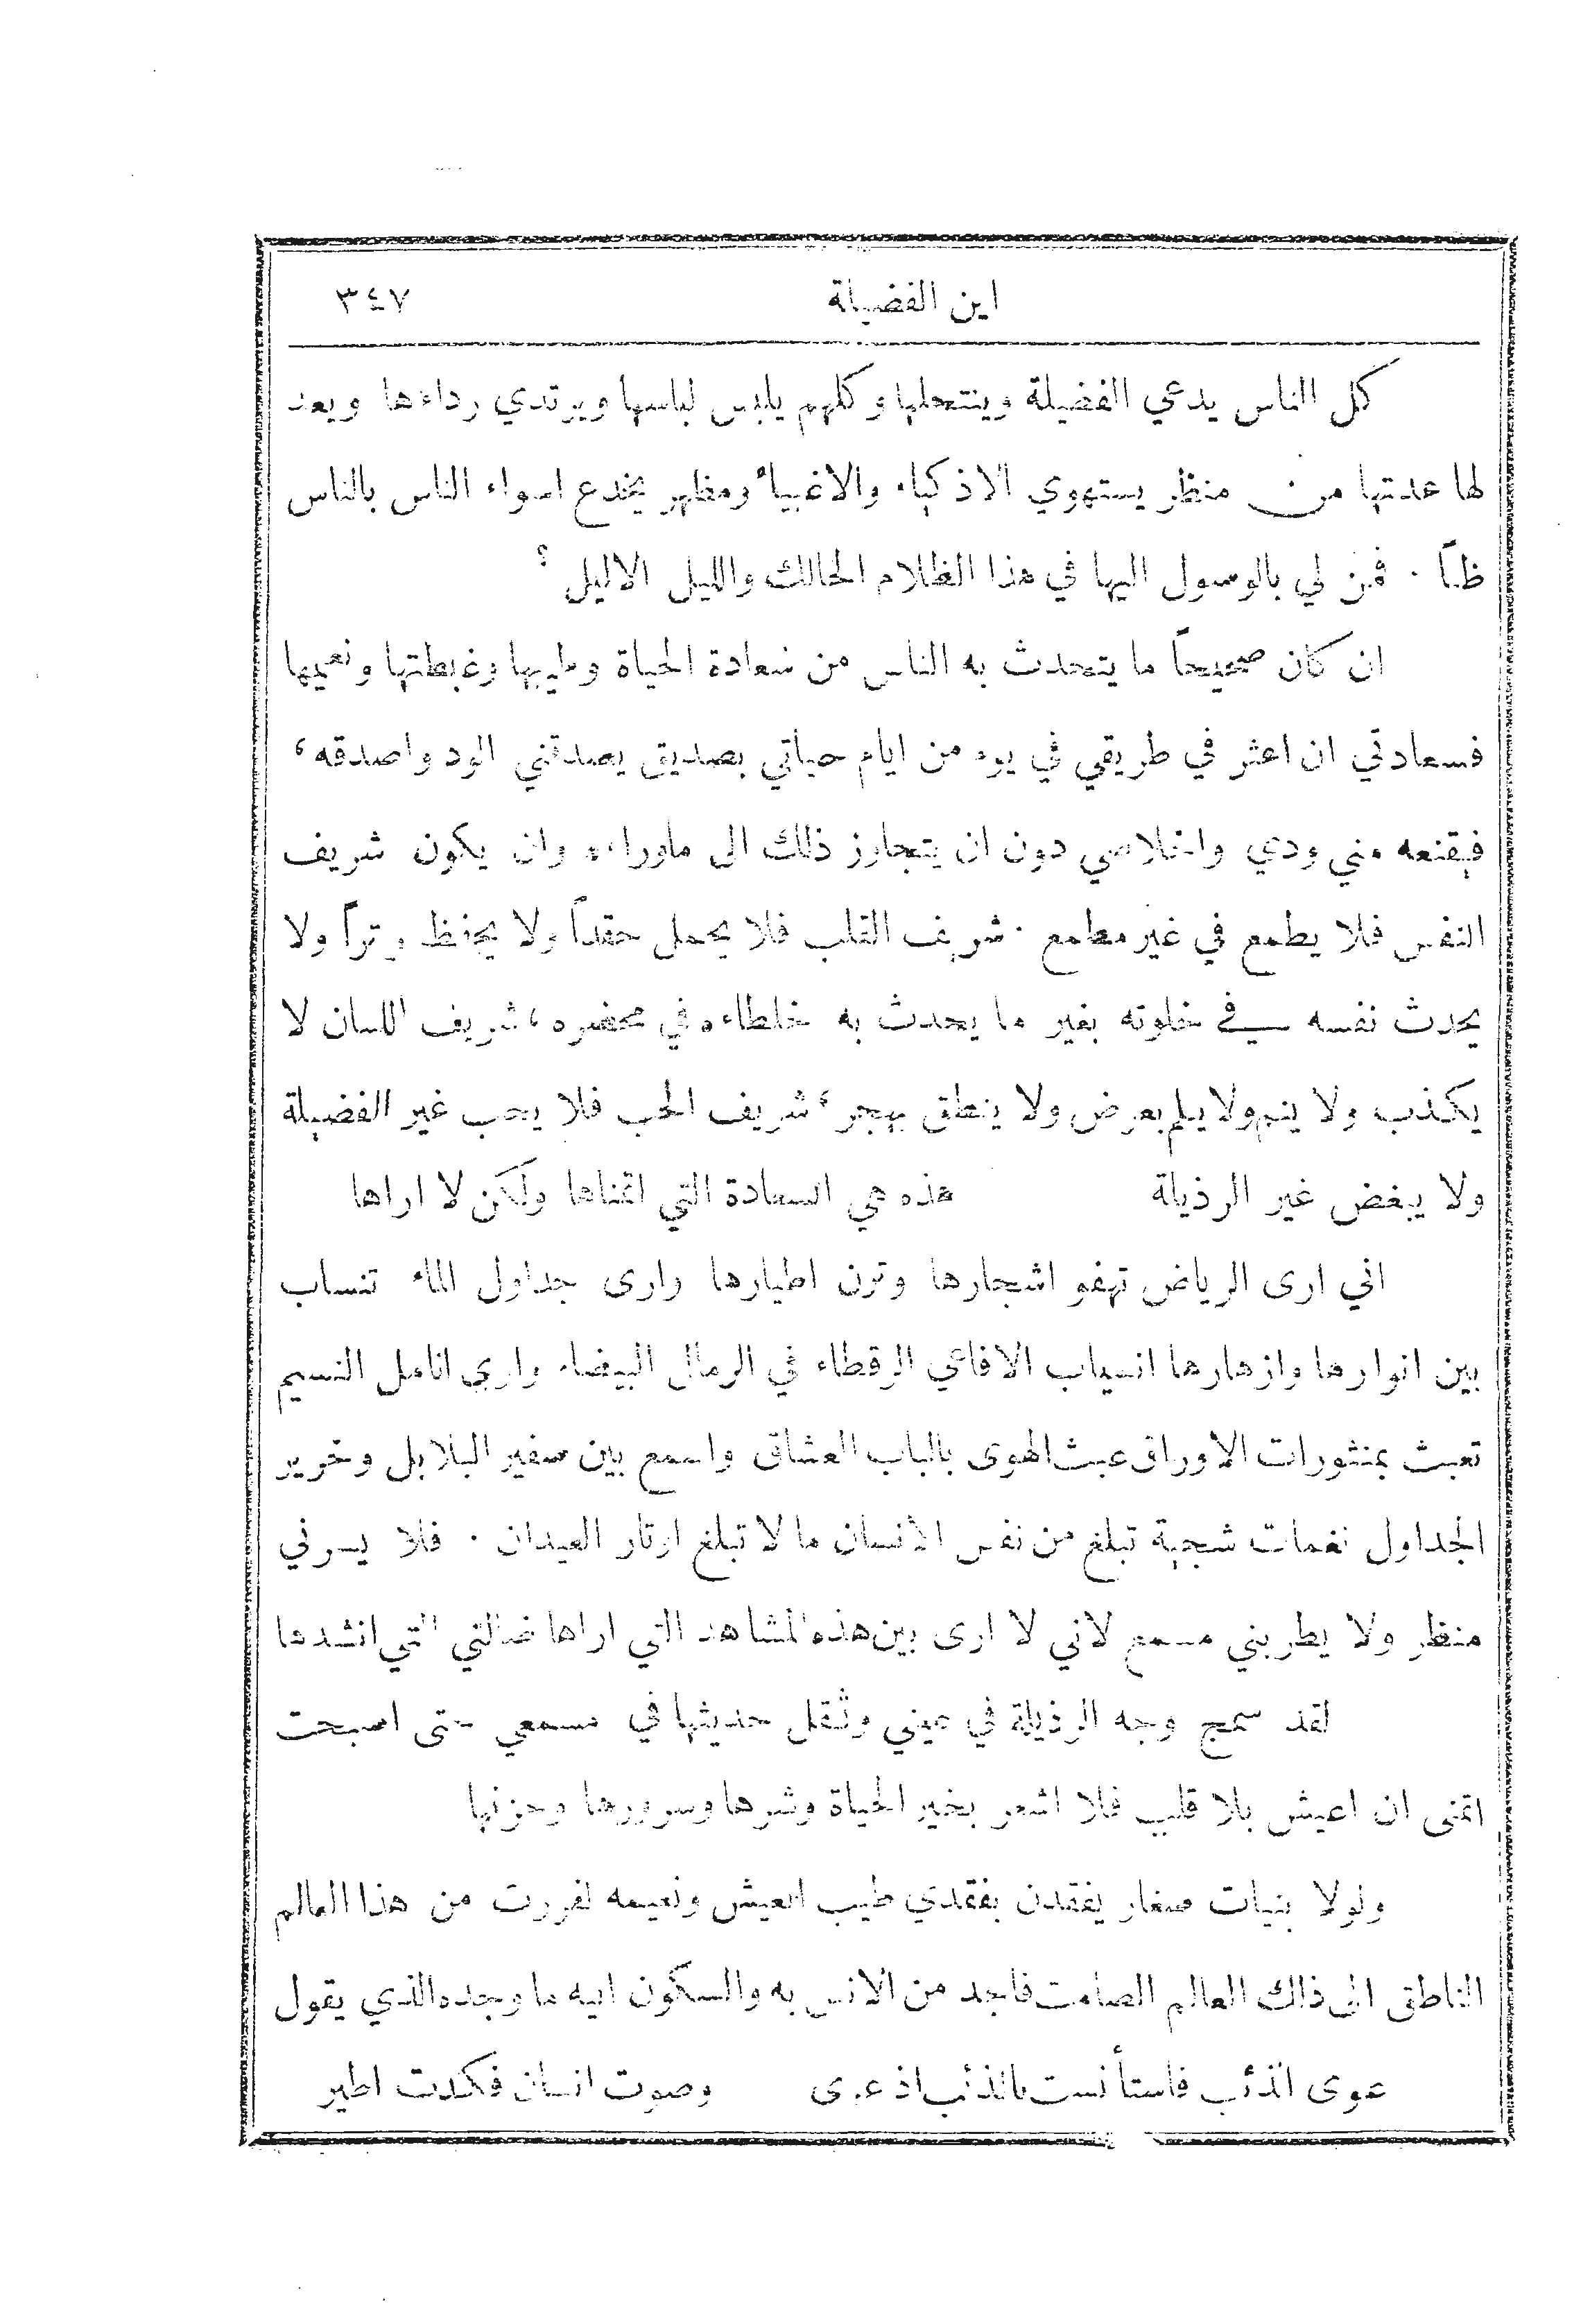 اين الفضيلة ٣٤٧
كل الناس يدعي الفضيلة وينتحلها وكلهم يلبس لباسها ويرتدي رداءها ويعد
لها عدتها من منظر يستهوي الاذكياء والاغبياء ومظهر يخدع اسواء الناس بالناس
ظنًا . فمن لي بالوصول اليها في هذا الظلام الحالك والليل الاليل ؟
ان كان صحيحاً ما يتحدث به الناس من سعادة الحياة وطيبها وغبطتها ونعيمها
فسعادتي ان اعثر في طريقي في يوم من ايام حياتي بصديق يصدقني الود واصدقه ،
فيقنعه مني ودي واخلاصي دون ان يتجاوز ذلك الى ماوراءه وان يكون شريف
النفس فلا يطمع في غير مطمع . شريف القلب فلا يحمل حقداً ولا يحفظ وتراً ولا
يحدث نفسه في خلوته بغير ما يحدث به خلطاءه في محضره ، شريف اللسان لا
يكذب ولا ينم ولا يلم بعرض ولا ينطق بهجر ، شريف الحب فلا يحب غير الفضيلة
ولا يبغض غير الرذيلة هذه هي السعادة التي اتمناها ولكن لا اراها
اني ارى الرياض تهفو اشجارها وترن اطيارها وارى جداول الماء تنساب
بين انوارها وازهارها انسياب الافاعي الرقطاء في الرمال البيضاء وارى انامل النسيم
تعبث بمنثورات الاوراق عبث الهوى بالباب العشاق واسمع بين صفير البلابل وخرير
الجداول نغمات شجية تبلغ من نفس الانسان ما لا تبلغ اوتار العيدان . فلا يسرني
منظر ولا يطربني مسمع لاني لا ارى بين هذه المشاهد التي اراها ضالتي التي انشدها
لقد سمج وجه الرذيلة في عيني وثقل حديثها في مسمعي حتى اصبحت
اتمنى ان اعيش بلا قلب فلا اشعر بخير الحياة وشرها وسرورها وحزنها
ولولا بنيات صغار يفقدن بفقدي طيب العيش ونعيمه لفررت من هذا العالم
الناطق الى ذلك العالم الصامت فاجد من الانس به والسكون اليه ما وجده الذي يقول
عوى الذئب فاستأنست بالذئب اذ عوى وصوت انسان فكدت اطير